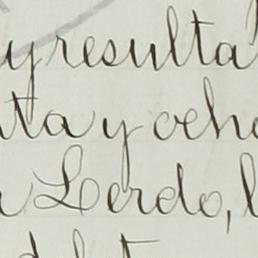 y resulta
ta y ocho
Lerdo,